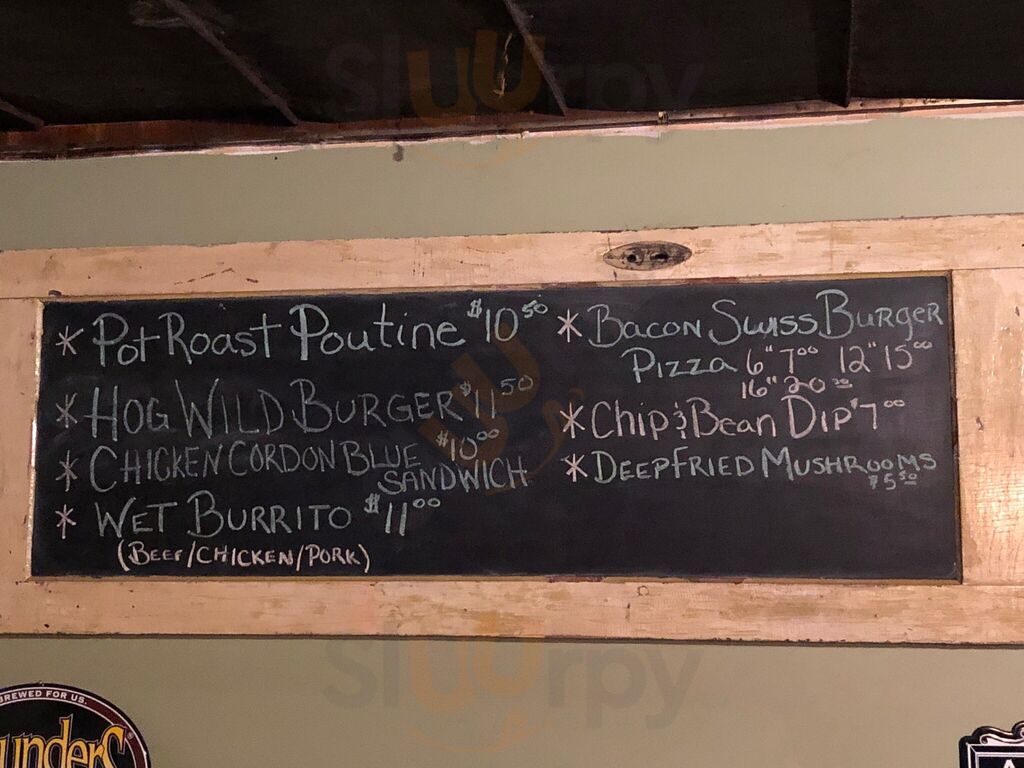 * Pot Roast Poutine $10 50
* HOG WILD BURGER $11 50
* CHICKEN CORDON BLUE $10 00
SANDWICH
* WET BURRITO $11 00
(BEEF/CHICKEN/PORK)
* BACON SWISS BURGER
PIZZA 6" 7 00 12" 15 00
16" 20 00
* CHIP & BEAN DIP $7 00
* DEEP FRIED MUSHROOMS
$5 50
BREWED FOR US.
unders
Sluurpy
Sluurpy